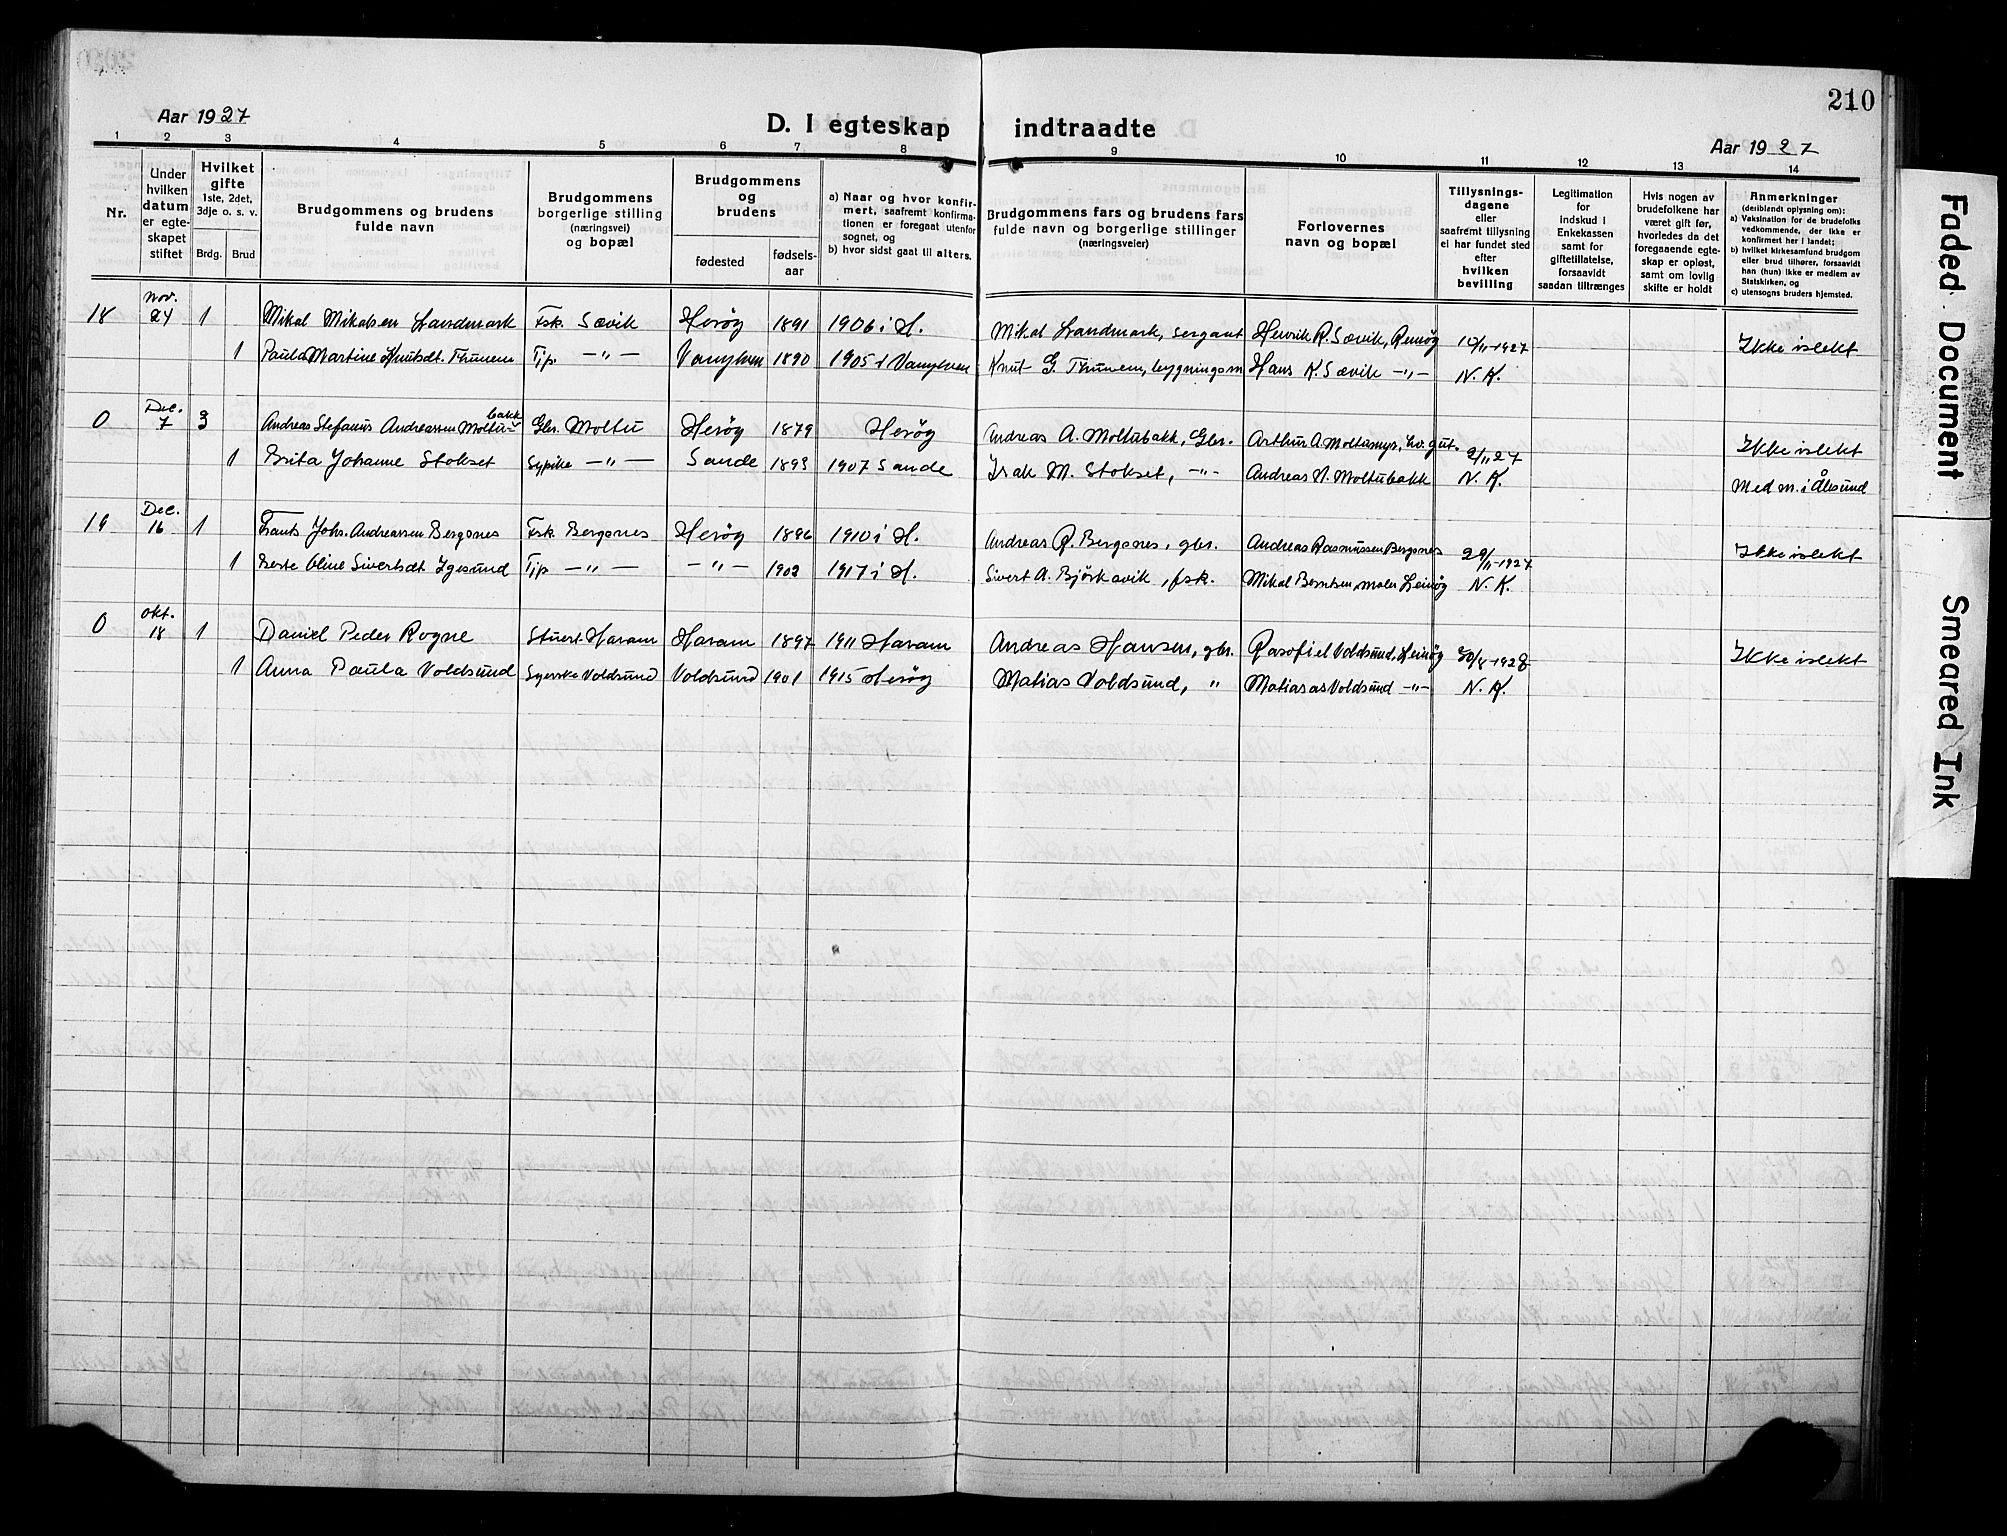 210
Aar 1927
D. I egteskap indtraadte
Aar 1927
1 2 3 4 5 6 7 8 9 10 11 12 13 14
Nr.
Under hvilken datum er egte-skapet stiftet
Hvilket gifte 1ste, 2det, 3dje o. s. v.
Brdg. Brud
Brudgommens og brudens fulde navn
Brudgommens borgerlige stilling (næringsvei) og bopæl
Brudgommens og brudens
fødested
fødsels-aar
a) Naar og hvor konfir-mert, saafremt konfirma-tionen er foregaat utenfor sognet, og
b) hvor sidst gaat til alters.
Brudgommens fars og brudens fars fulde navn og borgerlige stillinger (næringsveier)
Forlovernes navn og bopæl
Tillysnings-dagene eller saafremt tillysning ei har fundet sted efter hvilken bevilling
Legitimation for indskud i Enkekassen samt for giftetillatelse, forsaavidt saadan tiltrænges
Hvis nogen av brudefolkene har været gift før, hvorledes da det foregaaende egte-skap er opløst, samt om lovlig skifte er holdt
Anmerkninger (deriblandt oplysning om):
a) Vaksination for de brudefolks vedkommende, der ikke er konfirmert her i landet;
b) hvilket kirkesamfund brudgom eller brud tilhører, forsaavidt han (hun) ikke er medlem av Statskirken, og
c) utensogns bruders hjemsted.
18 Nov. 24 1 Mikal Mikalsen Landmark Fsk. Sævik Herøy 1891 1906 i H. Mikal Landmark, sergant Henrik R. Sævik, Remøy 10/11-1927 Ikke i slekt
1 Paula Martine Knutsdt. Thunem Tjp. -"- Vanylven 1890 1905 i Vanylven Knut G. Thunem, bygningsm Hans K. Sævik -"- N. K.
0 Dec. 7 3 Andreas Stefanus Andreassen Moltu-bakk Gbr. Moltu Herøy 1879 Herøy Andreas A. Moltubakk, Gbr. Arthur A. Moltumyr, gut. 2/11 27 Ikke i slekt
1 Brita Johanne Stokset Sypike -"- Sande 1893 1907 Sande Isak M. Stokset, -"- Andreas N. Moltubakk N. K. Med m. i Ålesund
19 Dec. 16 1 Frants Johs. Andreassen Bergsnes Fsk. Bergsnes Herøy 1896 1910 i H. Andreas R. Bergsnes, gbr. Andreas Rasmussen Bergsnes 29/11-1927 Ikke i slekt
1 Berte Oline Sivertsdt Igesund Tjp -"- -"- 1902 1917 i H. Sivert A. Bjørkavik, fsk. Mikal Berntsen, maler Leinøy N. K.
0 Okt. 18 1 Daniel Peder Rogne Stuert Haram Haram 1897 1911 Haram Andreas Hansen, gbr. Rasofiel Voldsund, Leinøy 1928 Ikke i slekt
1 Anna Paula Voldsund Syerske Voldsund Voldsund 1901 1915 Herøy Matias Voldsund, " Matias Voldsund -"- N. K.
Faded Document
Smeared Ink